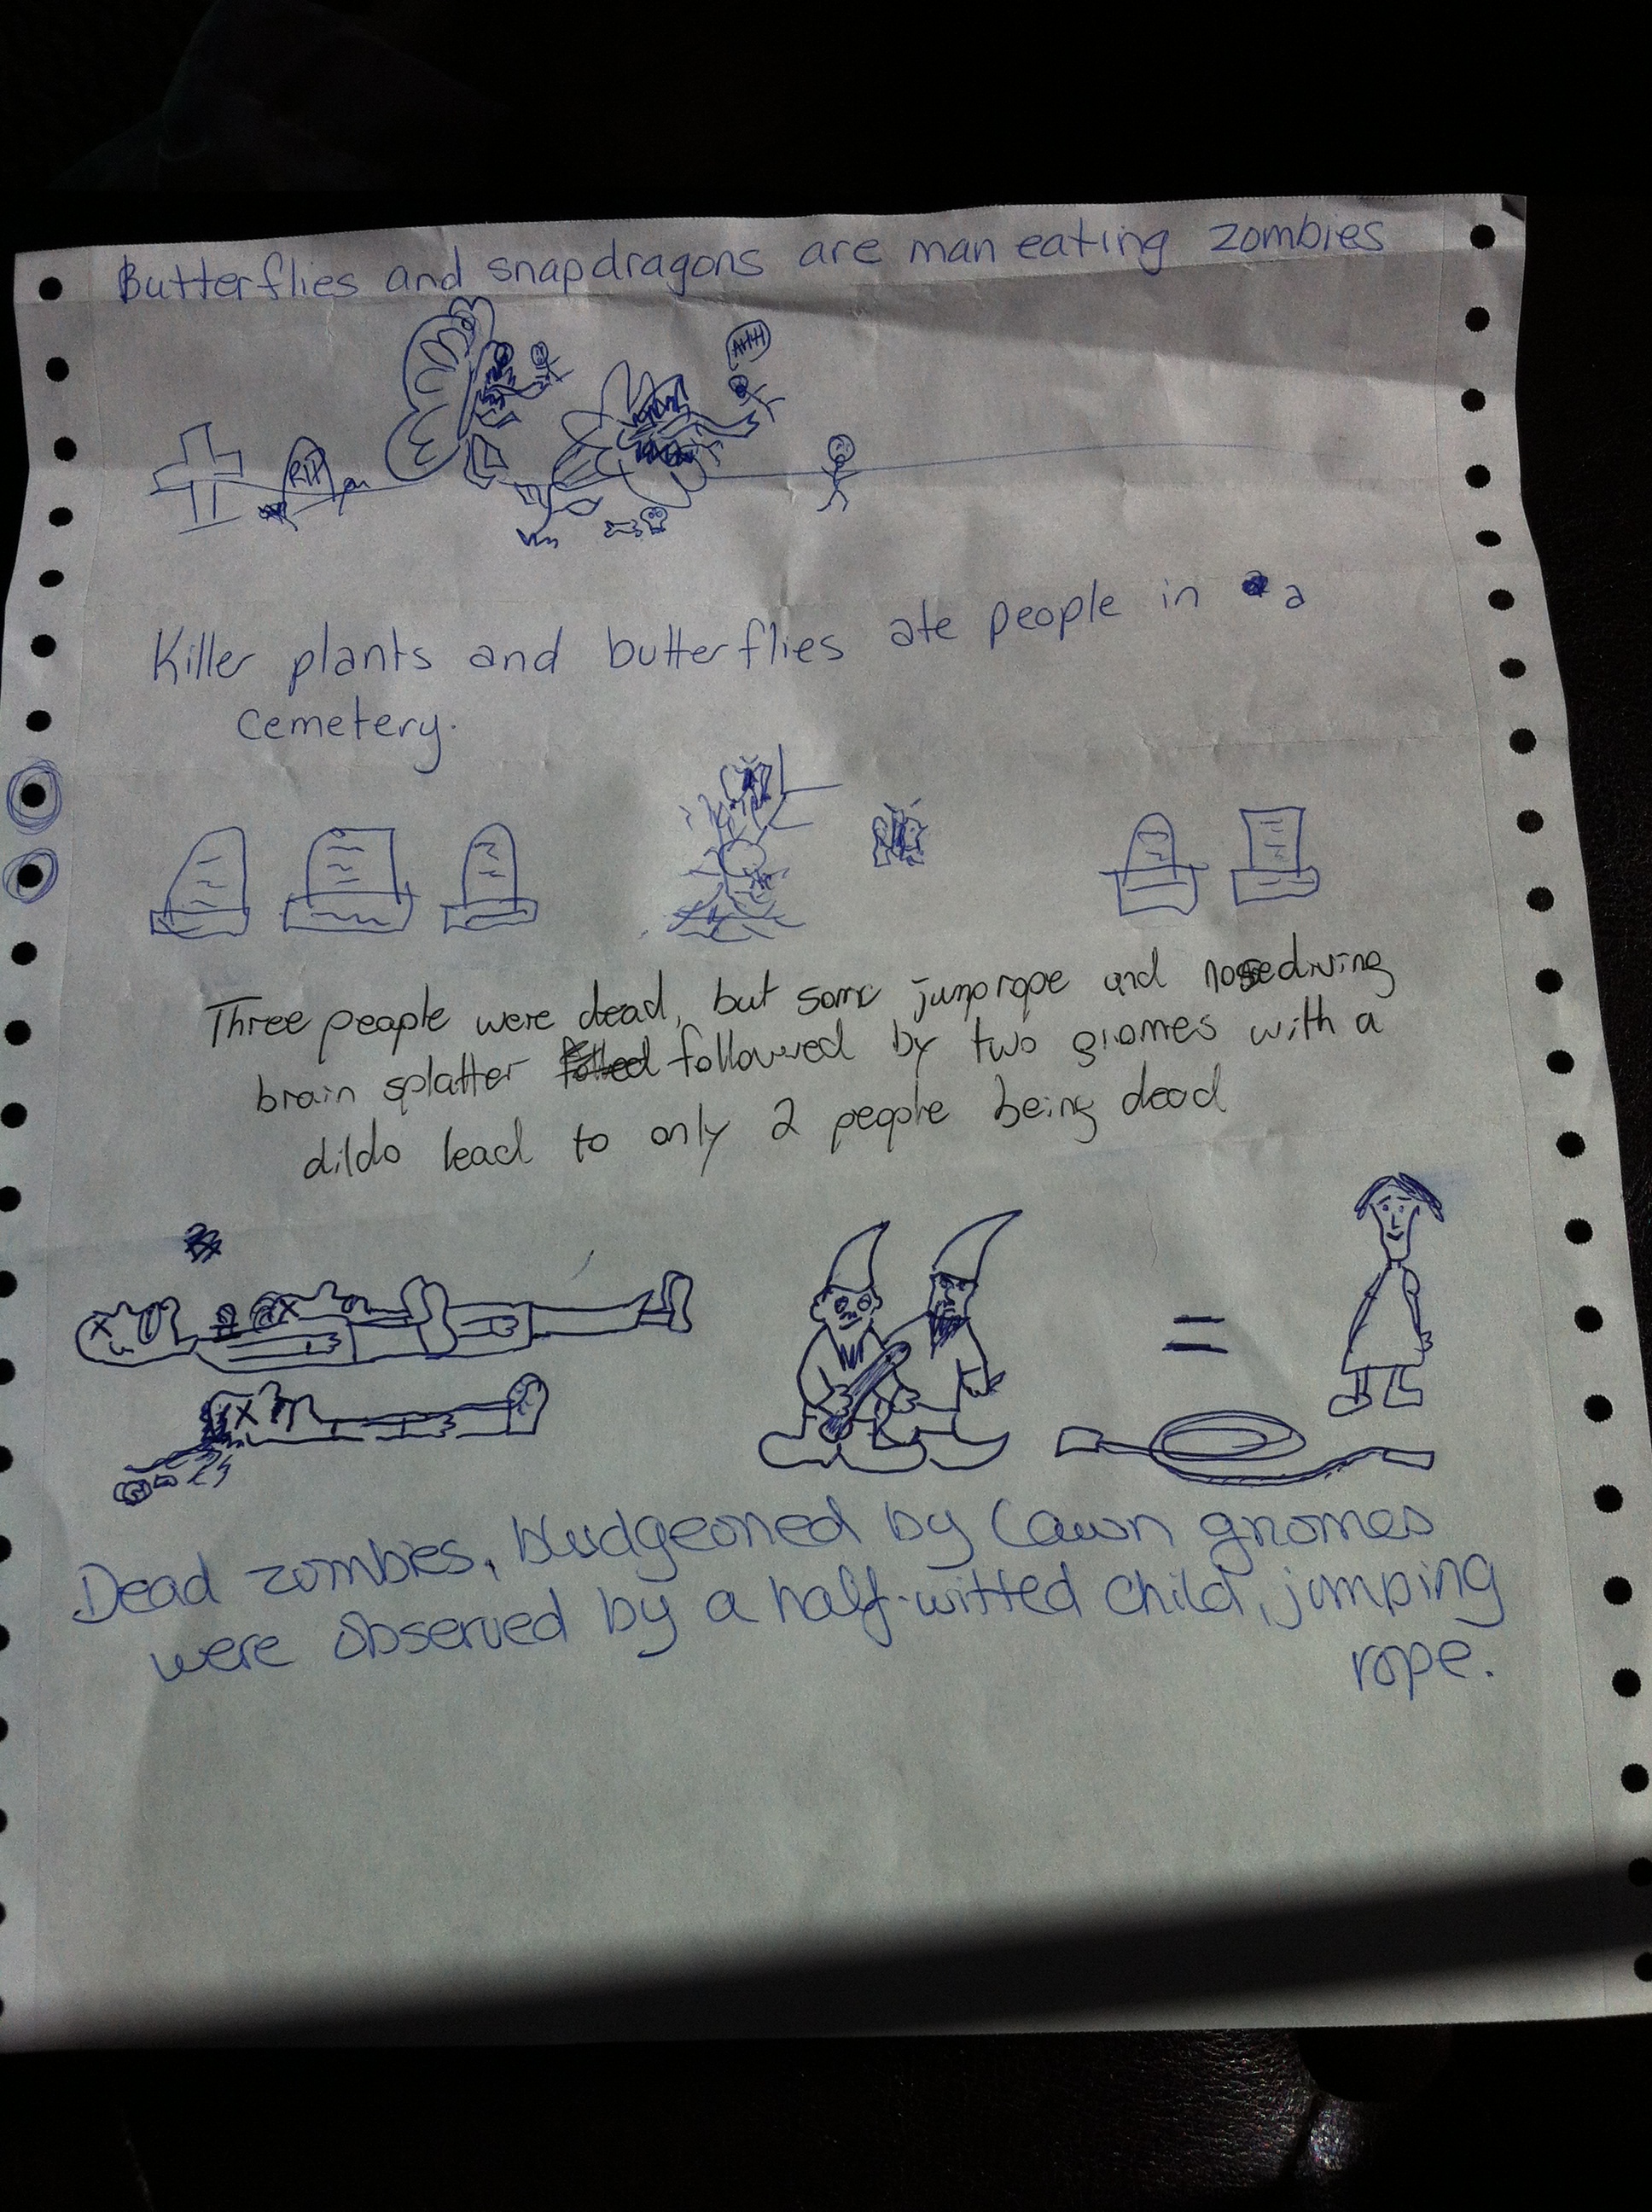 Butterflies and snapdragons are man eating zombies
AHH
RIP
Killer plants and butterflies ate people in a
cemetery.
Three people were dead, but some jumprope and nosediving
brain splatter followed by two gnomes with a
dildo lead to only 2 people being dead
=
Dead zombies, bludgeoned by lawn gnomes
were observed by a half-witted child, jumping
rope.